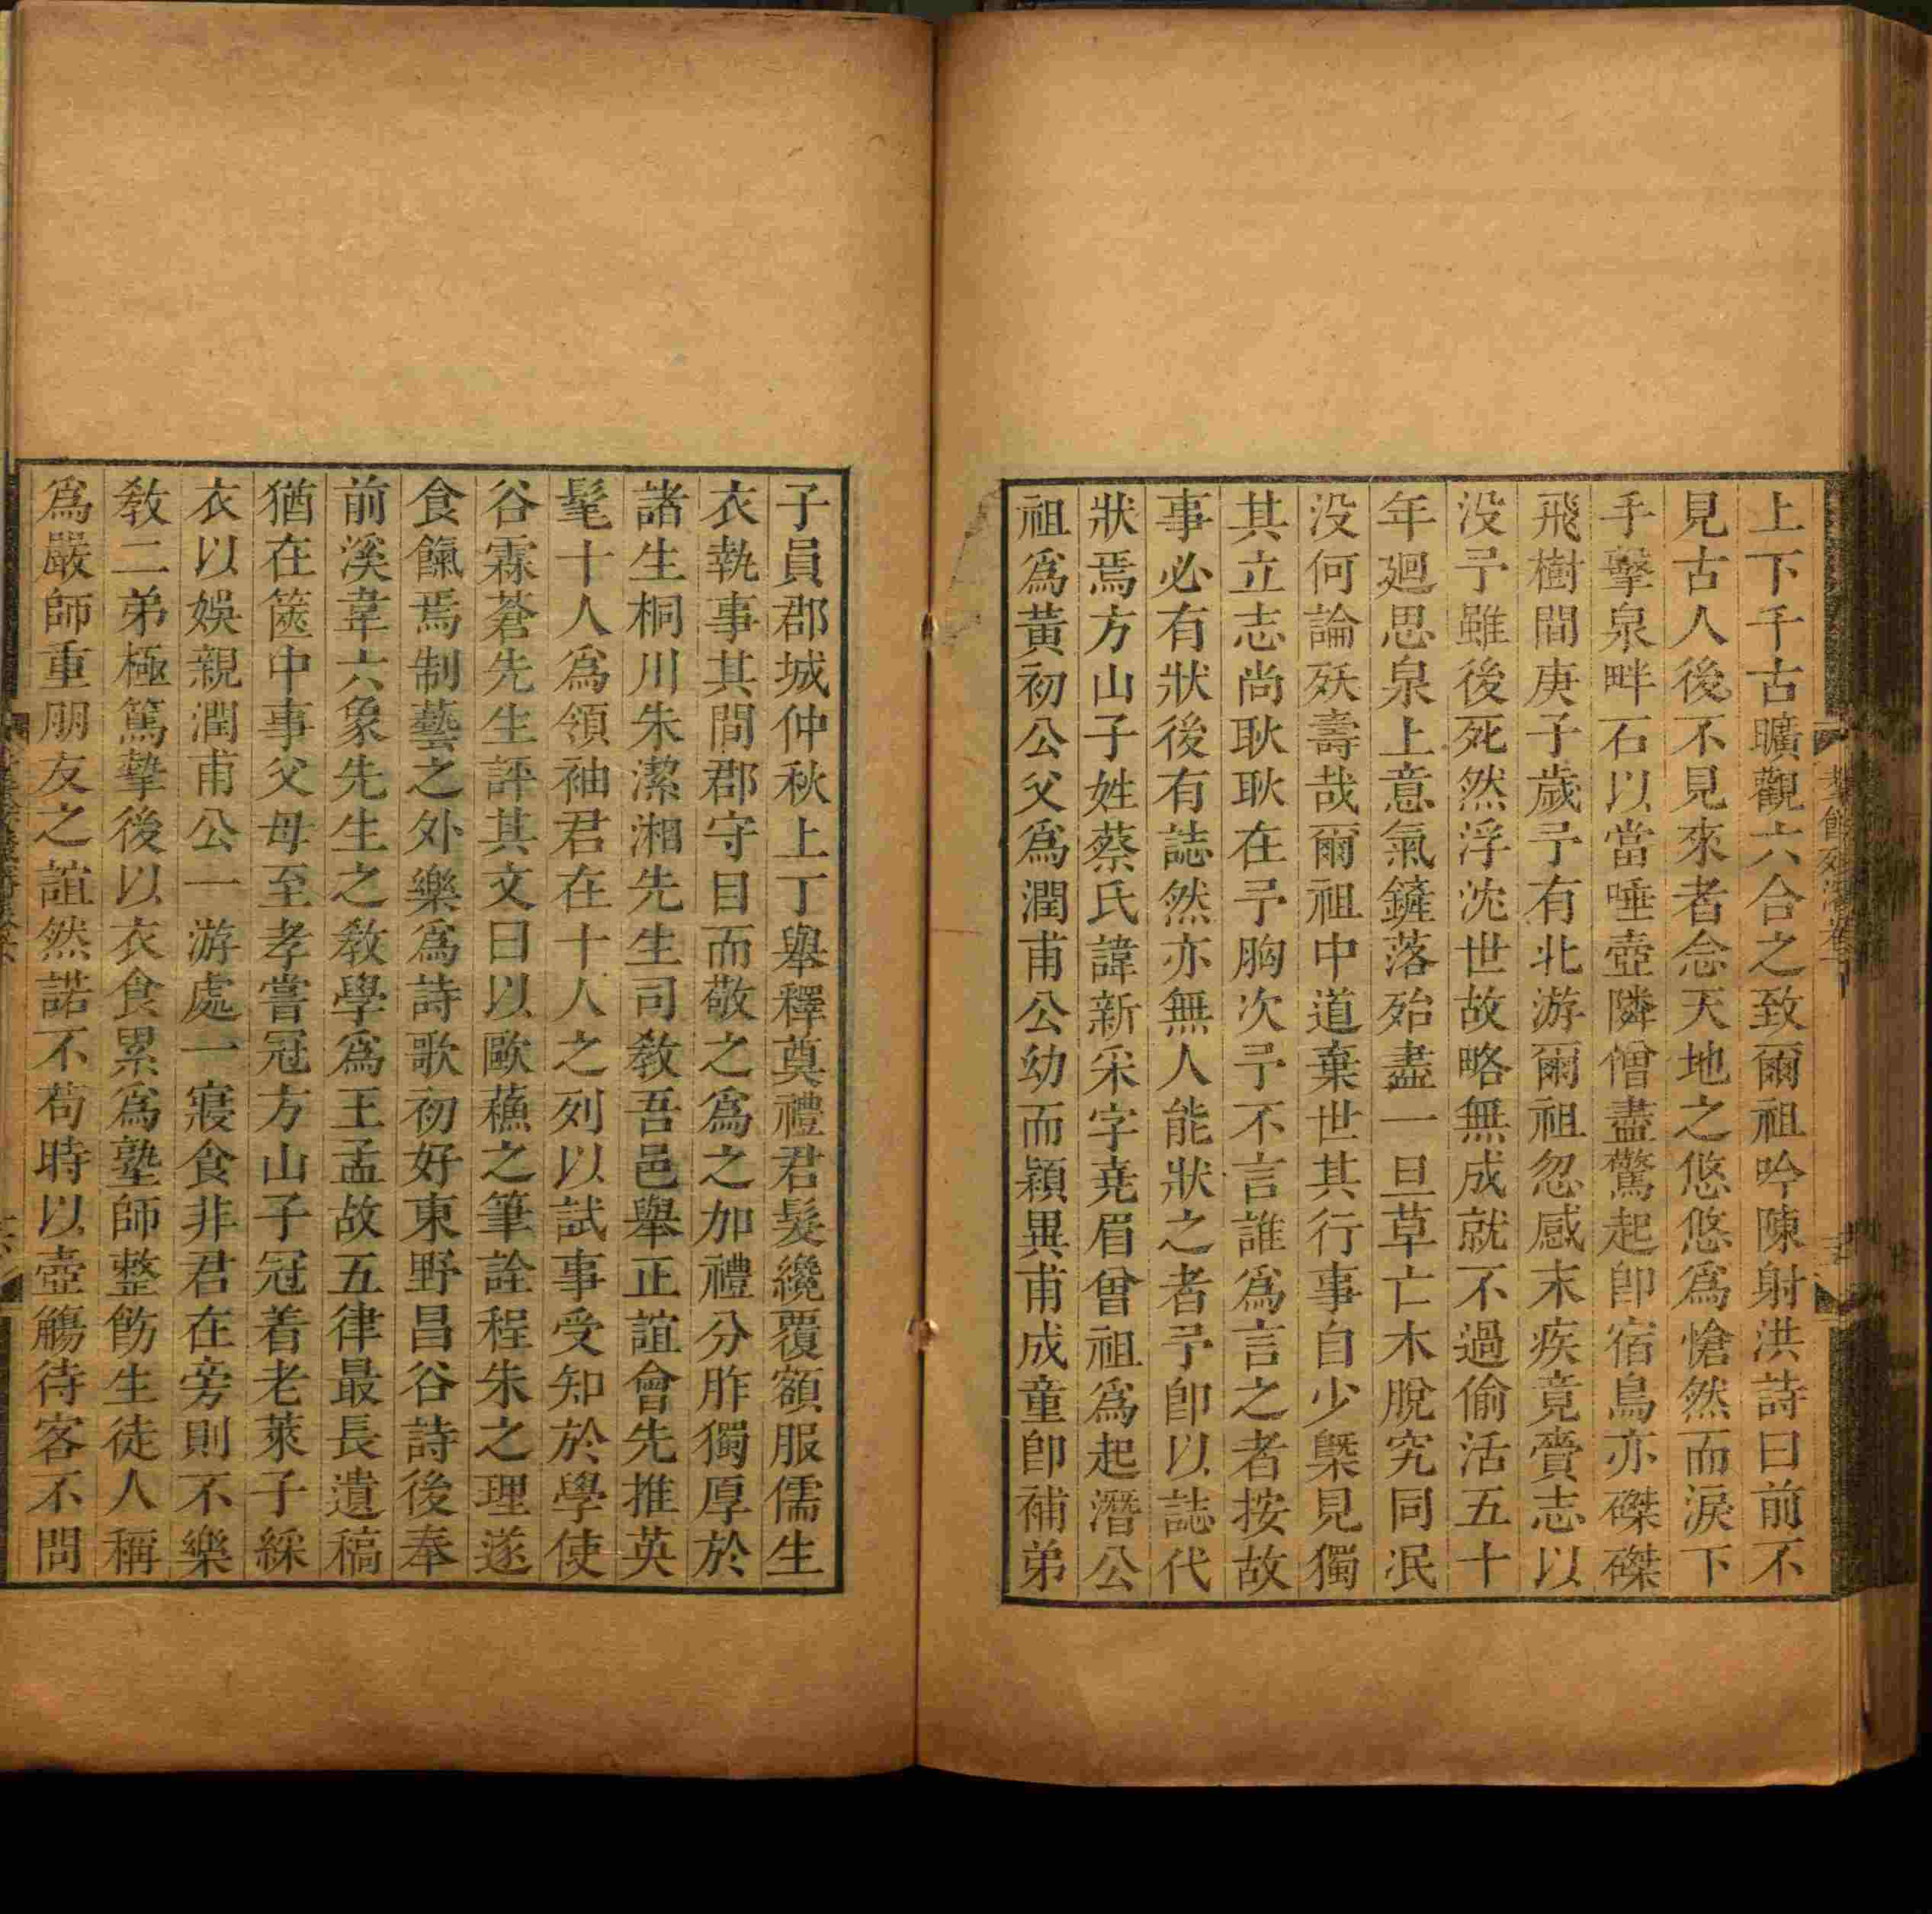 上下千古曠觀六合之致爾祖吟陳射洪詩曰前不
見古人後不見來者念天地之悠悠爲愴然而淚下
手擊泉畔石以當唾壺隣僧盡驚起卽宿鳥亦磔磔
飛樹間庚子歲予有北游爾祖忽感末疾竟賫志以
没予雖後死然浮沈世故略無成就不過偷活五十
年廻思泉上意氣鏟落殆盡一旦草亡木脫究同泯
没何論殀壽哉爾祖中道棄世其行事自少槩見獨
其立志尚耿耿在予胸次予不言誰爲言之者按故
事必有狀後有誌然亦無人能狀之者予卽以誌代
狀焉方山子姓蔡氏諱新采字堯眉曾祖爲起潛公
祖爲黃初公父爲潤甫公幼而穎異甫成童卽補弟
子員郡城仲秋上丁舉釋奠禮君髮纔覆額服儒生
衣執事其間郡守目而敬之爲之加禮分胙獨厚於
諸生桐川朱潔湘先生司敎吾邑舉正誼會先推英
髦十人爲領袖君在十人之列以試事受知於學使
谷霖蒼先生評其文曰以歐蘓之筆詮程朱之理遂
食餼焉制藝之外樂爲詩歌初好東野昌谷詩後奉
前溪韋六象先生之敎學爲王孟故五律最長遺稿
猶在篋中事父母至孝嘗冠方山子冠着老萊子綵
衣以娛親潤甫公一游處一寢食非君在旁則不樂
敎二弟極篤摯後以衣食累爲塾師整飭生徒人稱
爲嚴師重朋友之誼然諾不苟時以壺觴待客不問